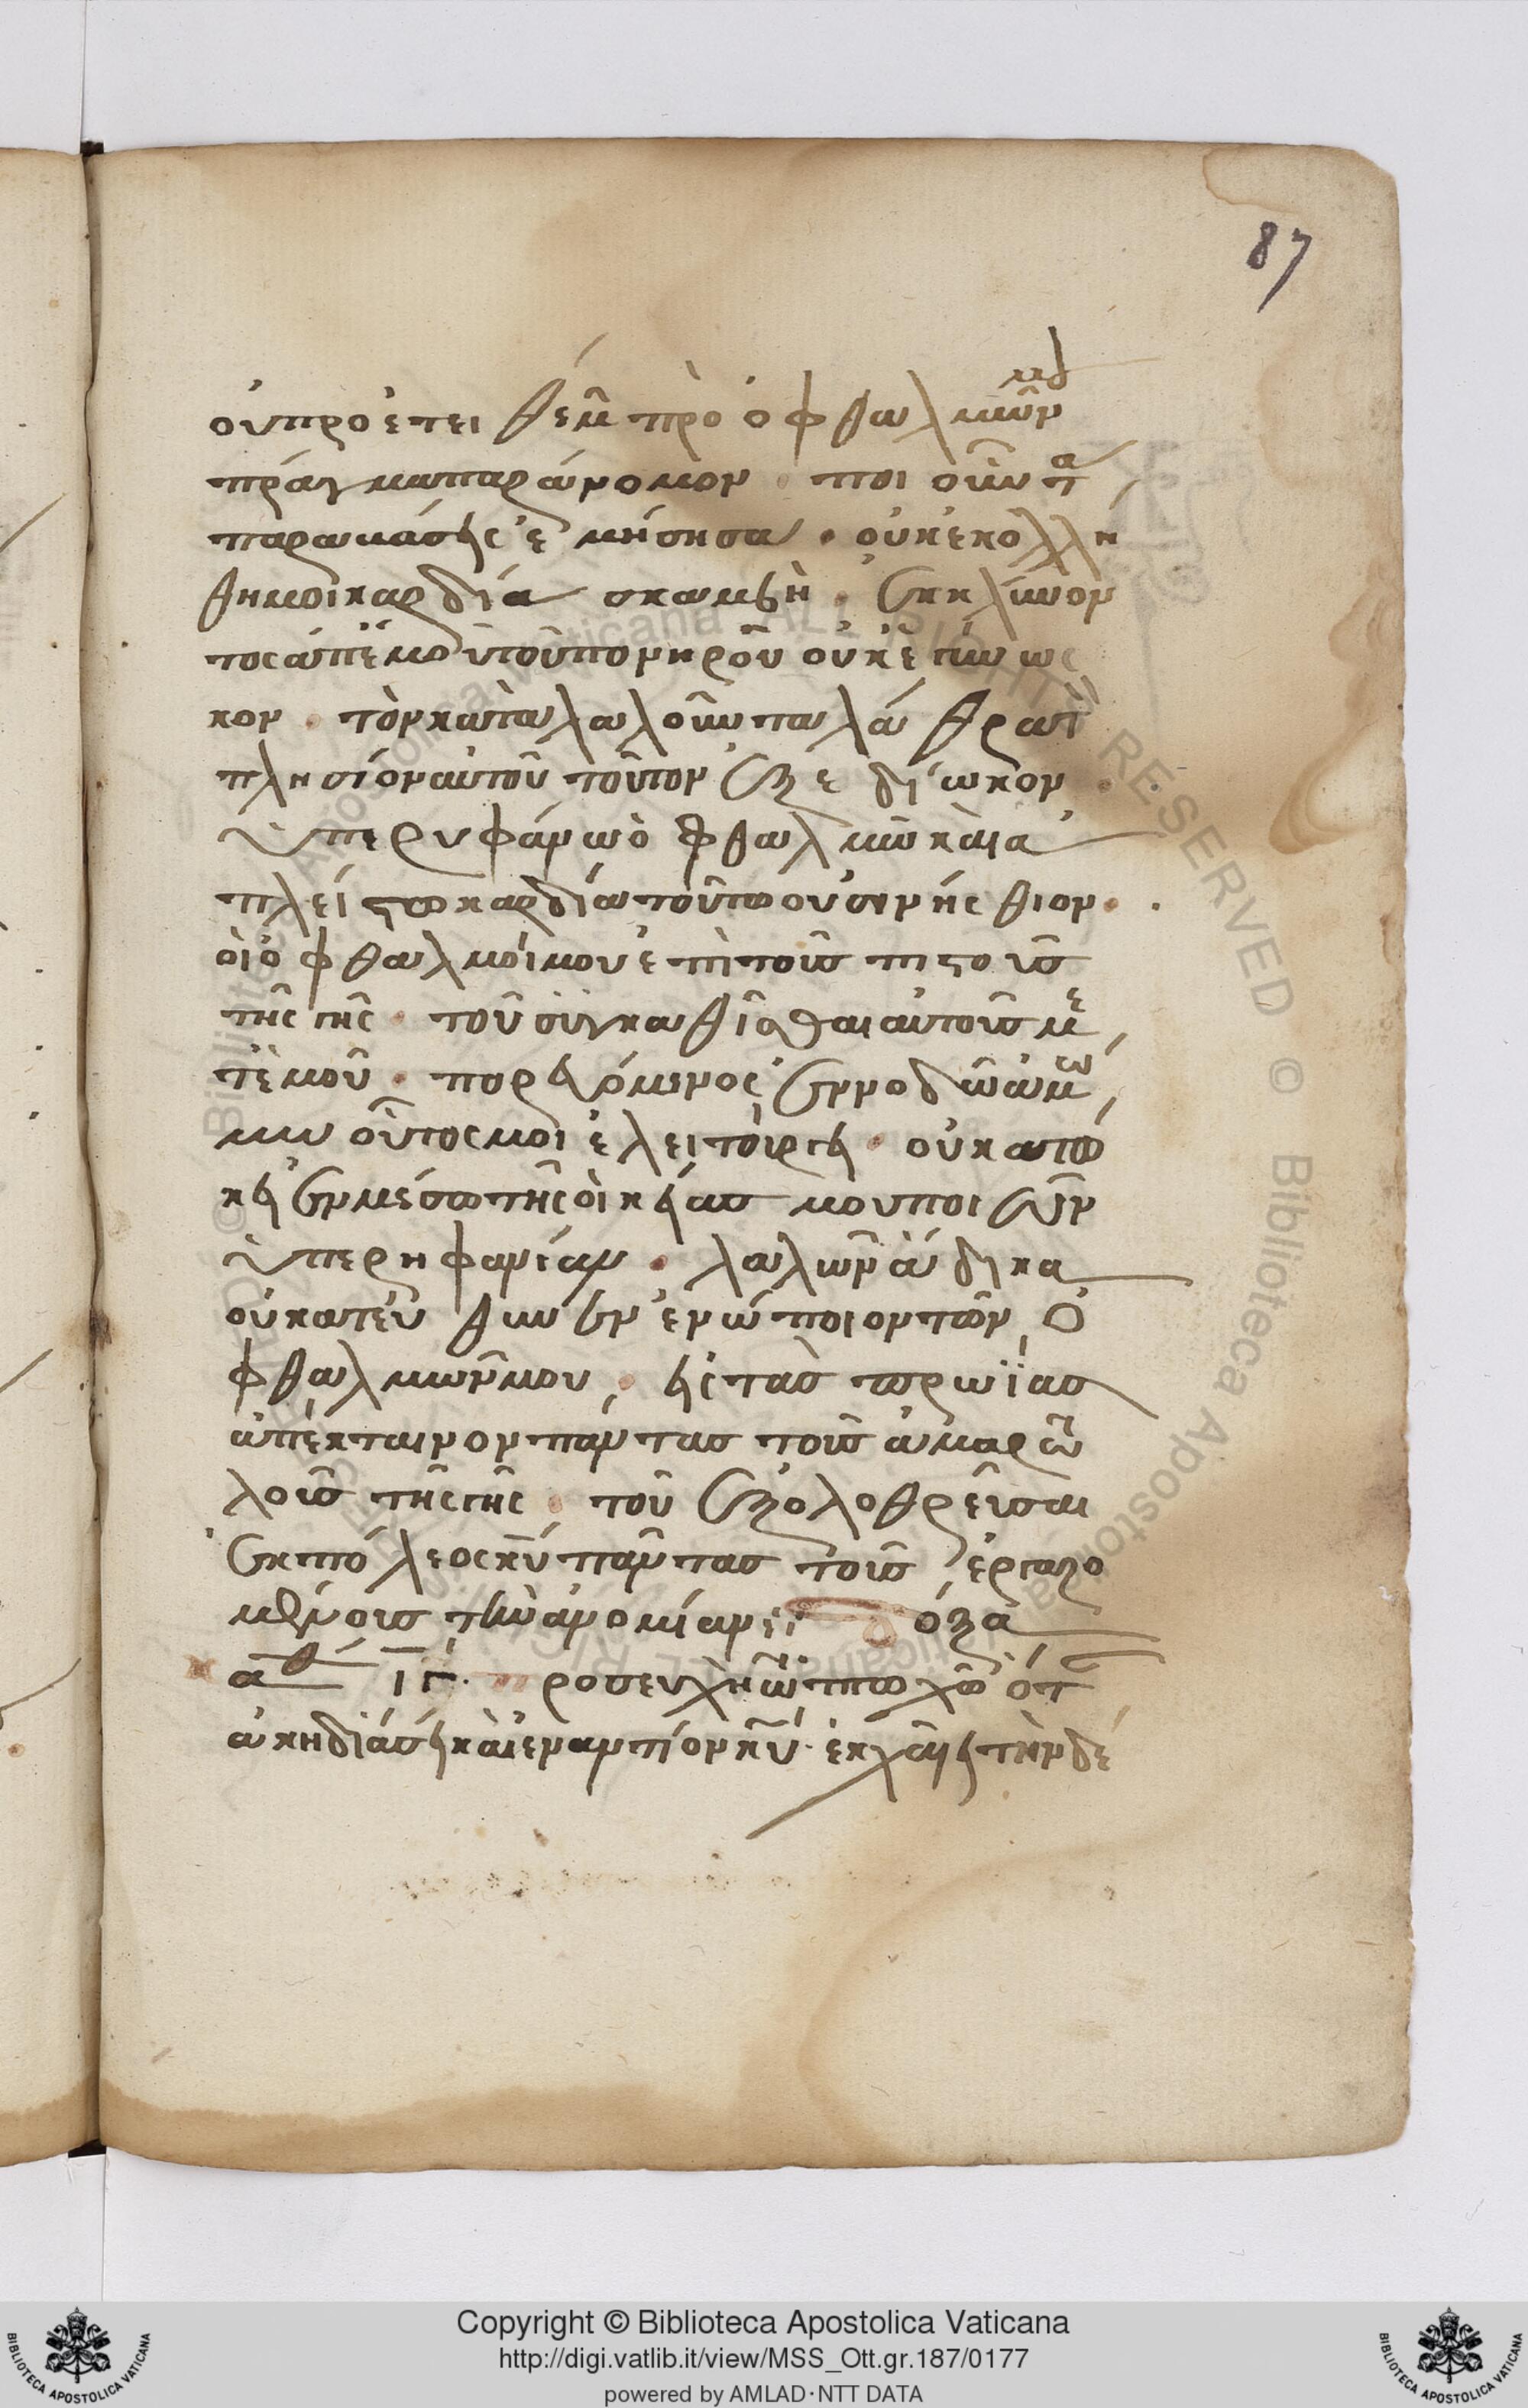 87
οὐ προἐτει θεμ πρὸ ὀφθαλμῶν μου
πράγμα παράνομον· ποιοῦντα
παραβάσεις ἐμήσησα· οὐκ ἐκολλή
θη μοι καρδία σκαμβὴ· ἐκκλίνον
τος ἀπ' ἐμοῦ τοῦ πονηροῦ οὐκ ἐγίνωσ
κον· τὸν καταλαλοῦντα λάθρα τὸν
πλησίον αὐτοῦ τοῦτον ἐξεδίωκον·
ὑπερυφάνω ὀφθαλμῶ καὶ ἀ
πλείστω καρδία τούτω οὐ συνήσθιον·
οἱ ὀφθαλμοί μου ἐπὶ τοὺς πιστοὺς
τῆς γῆς· τοῦ συγκαθῖσθαι αὐτοὺς με
τ' ἐμοῦ· πορευόμενος ἐν ὁδῶ ἀμώ
μω οὗτος μοι ἐλειτούργει· οὐ κατώ
κει ἐν μέσω τῆς οἰκείας μου ποιῶν
ὑπερηφανίαν· λαλῶν ἄδικα
οὐ κατεύθυνεν ἐνώποιον τῶν ὀ
φθαλμῶν μου· εἰς τὰς πρωΐας
ἀπέκταινον πάντας τοὺς ἁμαρτω
λοὺς τῆς γῆς· τοῦ ἐξολοθρεῦσαι
ἐκ πόλεος κυ πάντας τοὺς ἐργαζο
μένους τὴν ἀνομίαν: δόξα
ροσευχὴ τῶ πτωχῶ ὅτ
ἀκηδιάσει καὶ ἐναντίον κυ ἐκχέει τὴν δέ
Copyright © Biblioteca Apostolica Vaticana
http://digi.vatlib.it/view/MSS_Ott.gr.187/0177
powered by AMLAD·NTT DATA